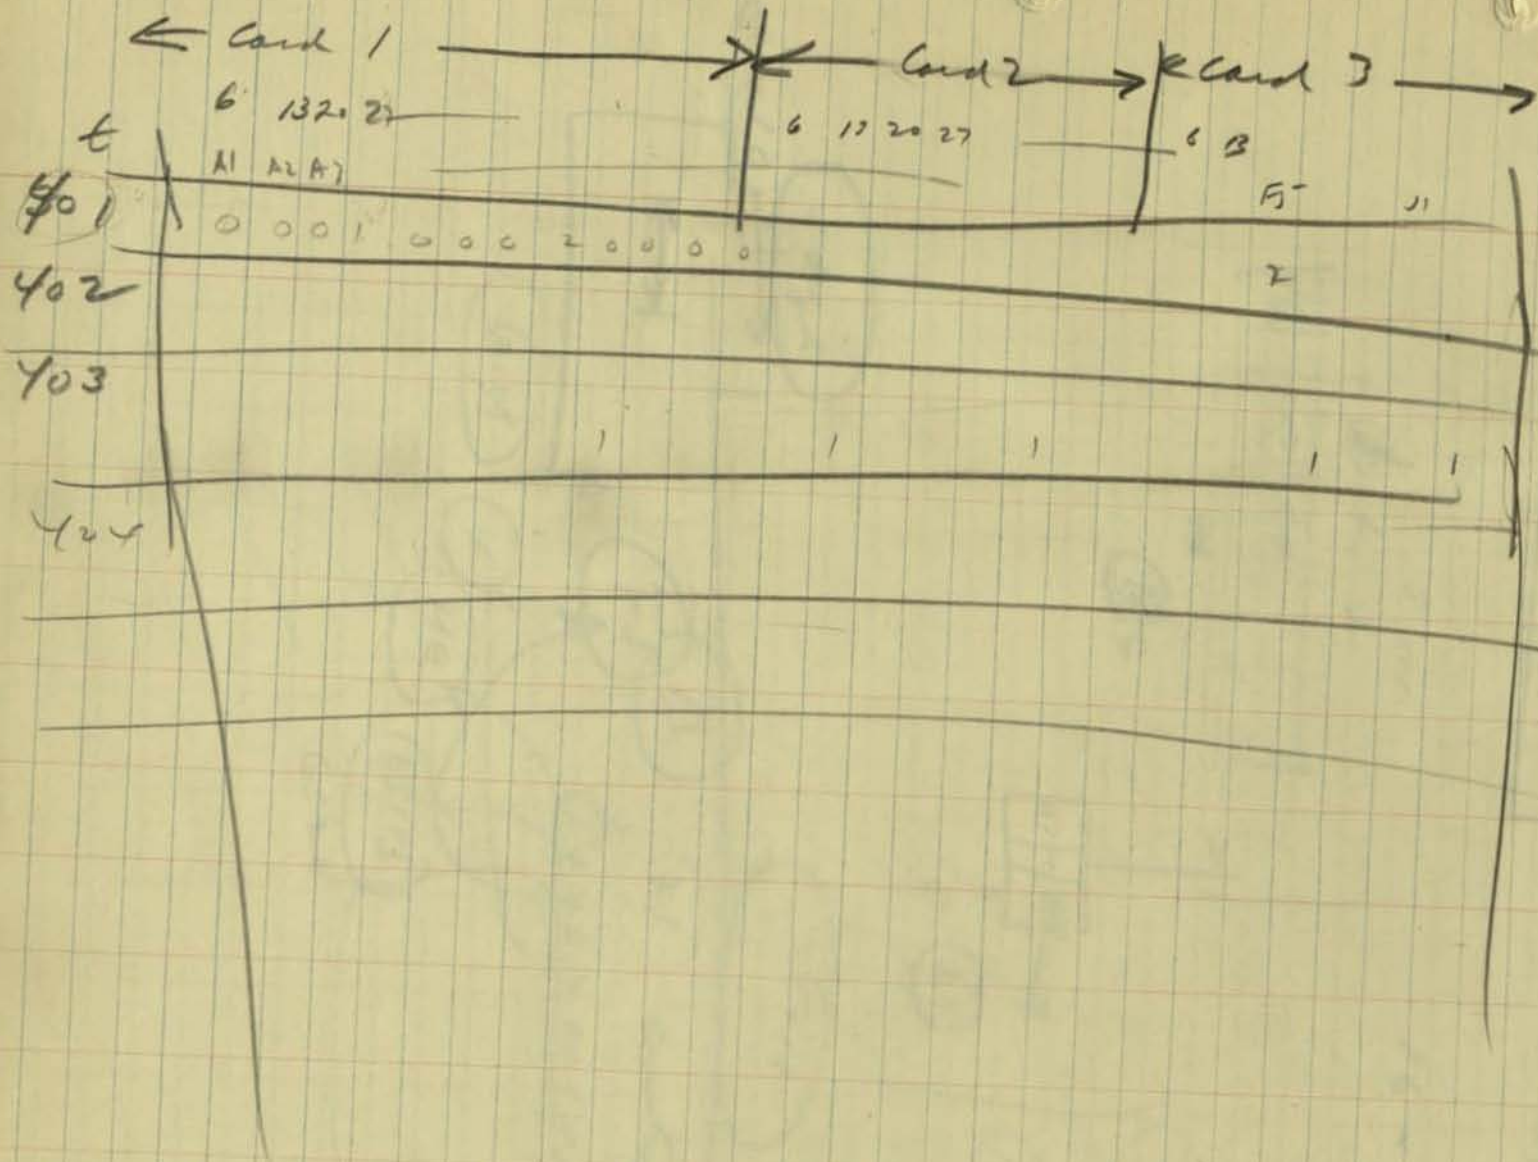 ← Card 1 → ← Card 2 → ← Card 3 →
6 13 20 27 6 13 20 27 6 13
t A1 A2 A3
401 0 0 0 1 0 0 0 2 0 0 0 0
402 2
403
1 1 1 1 1